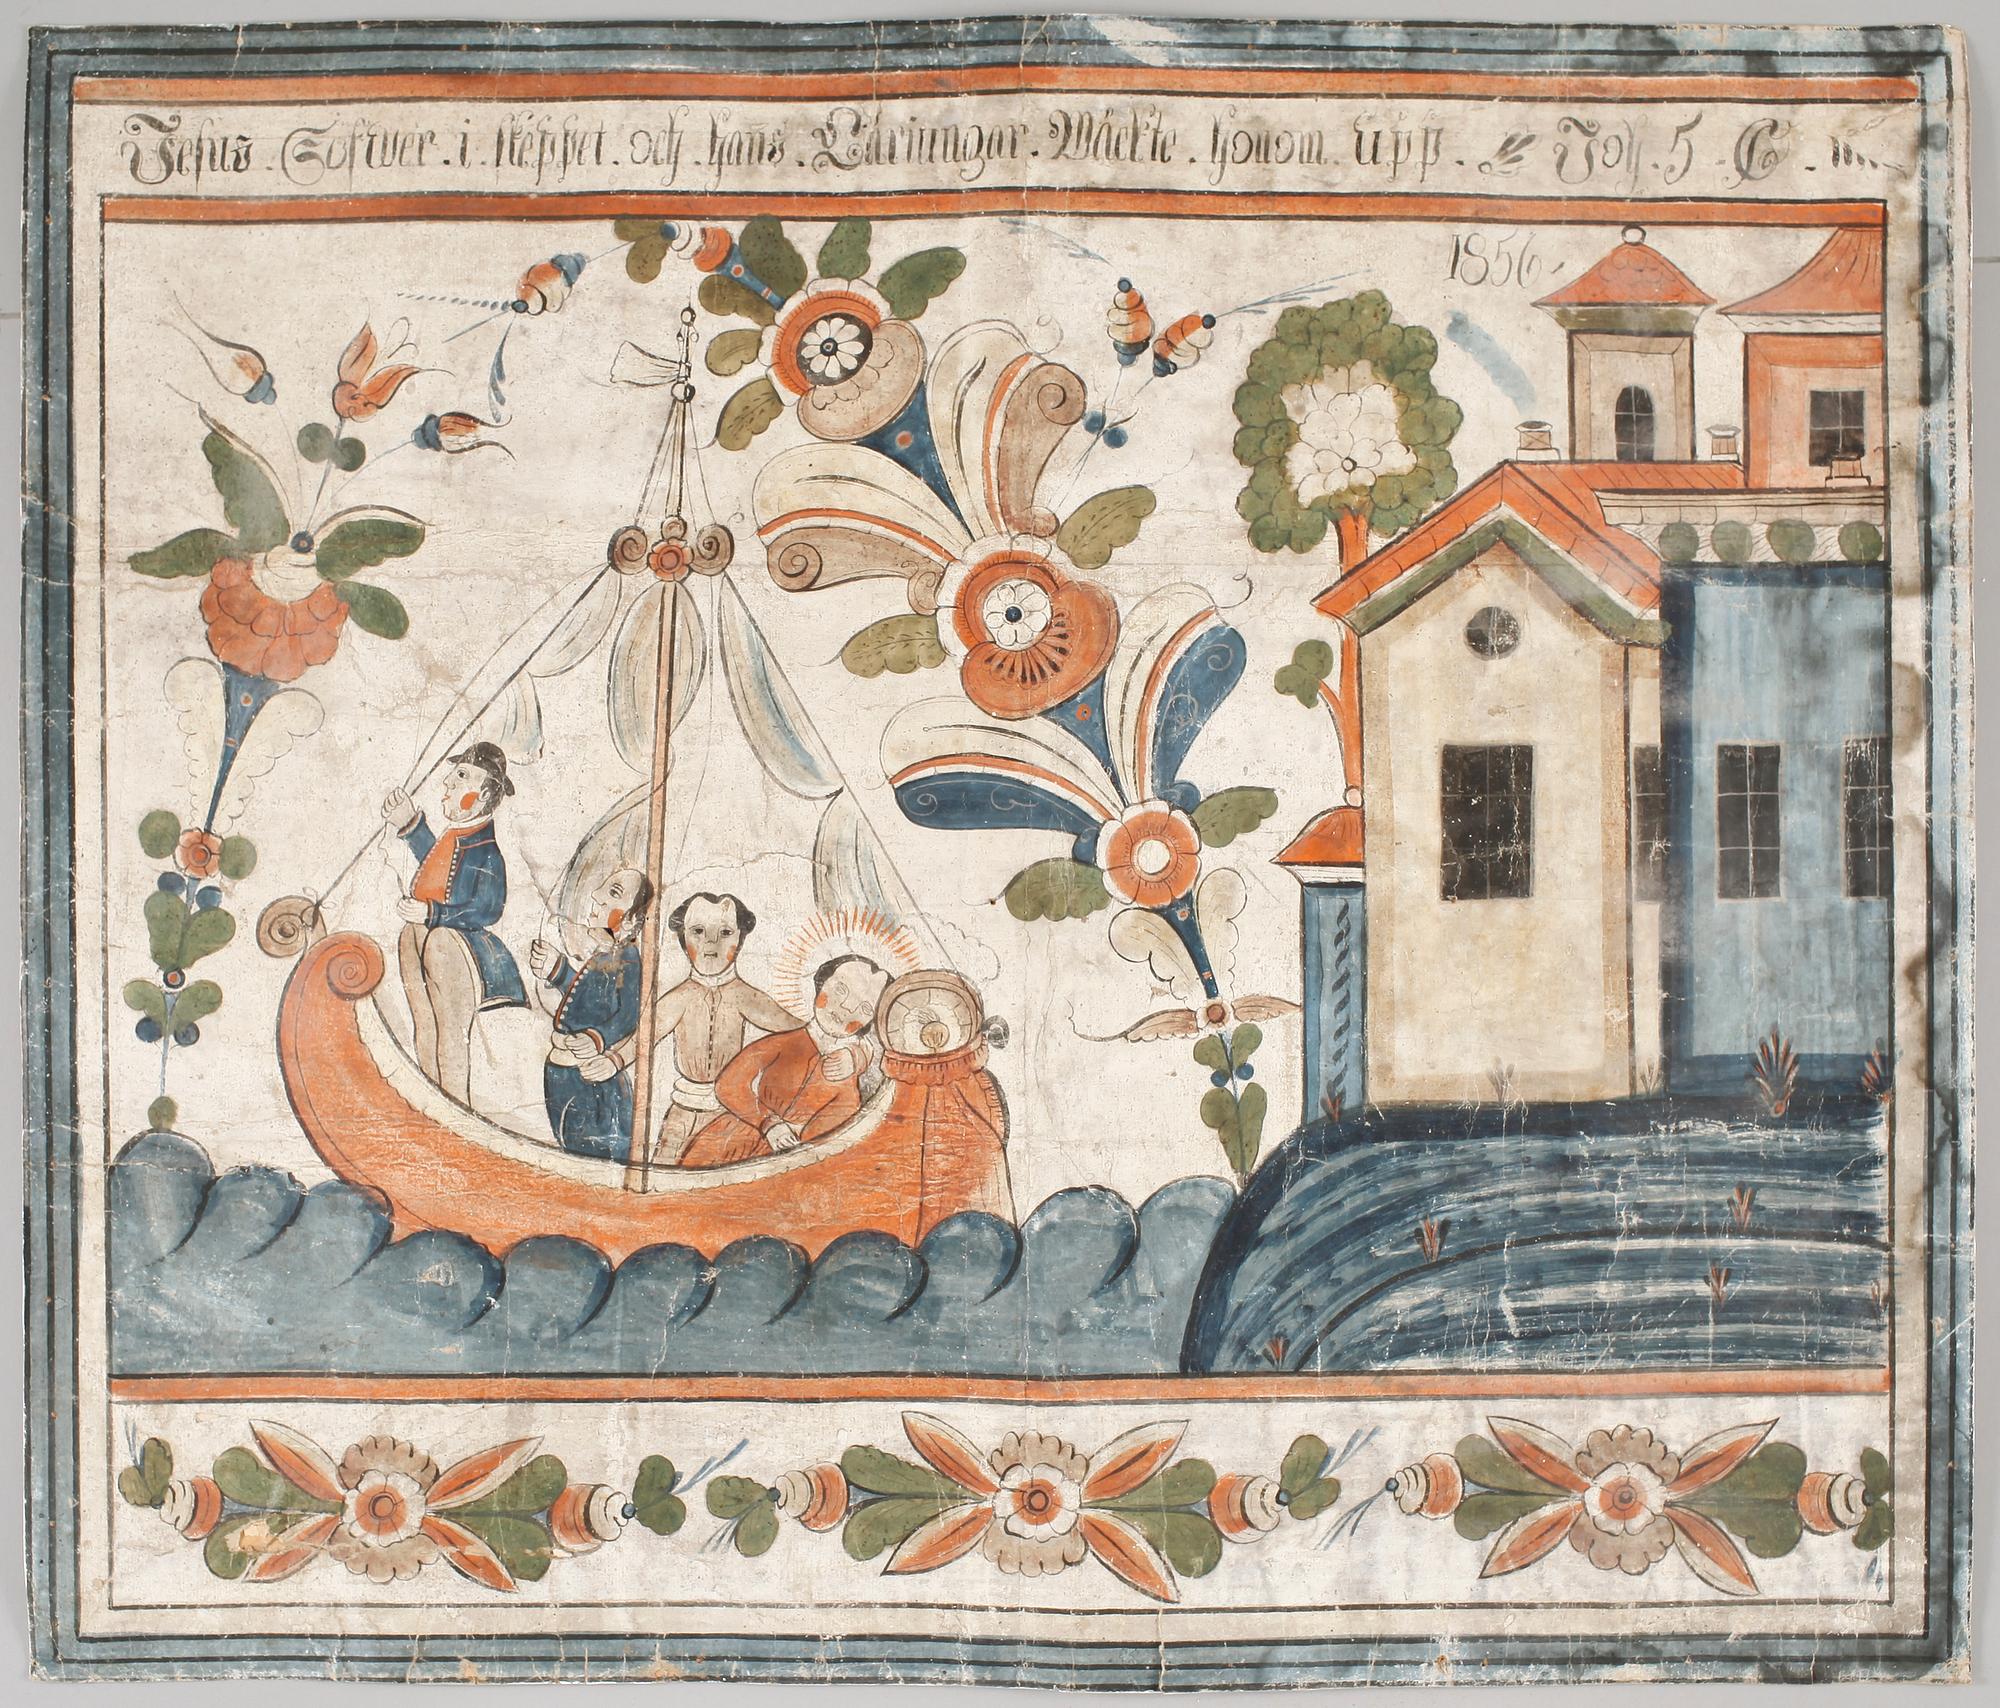 Jesus . Sofwer . i . skeppet . och . hans . Lärjungar . Wäckte . honom . upp . Joh . 5 . C .
1856 .